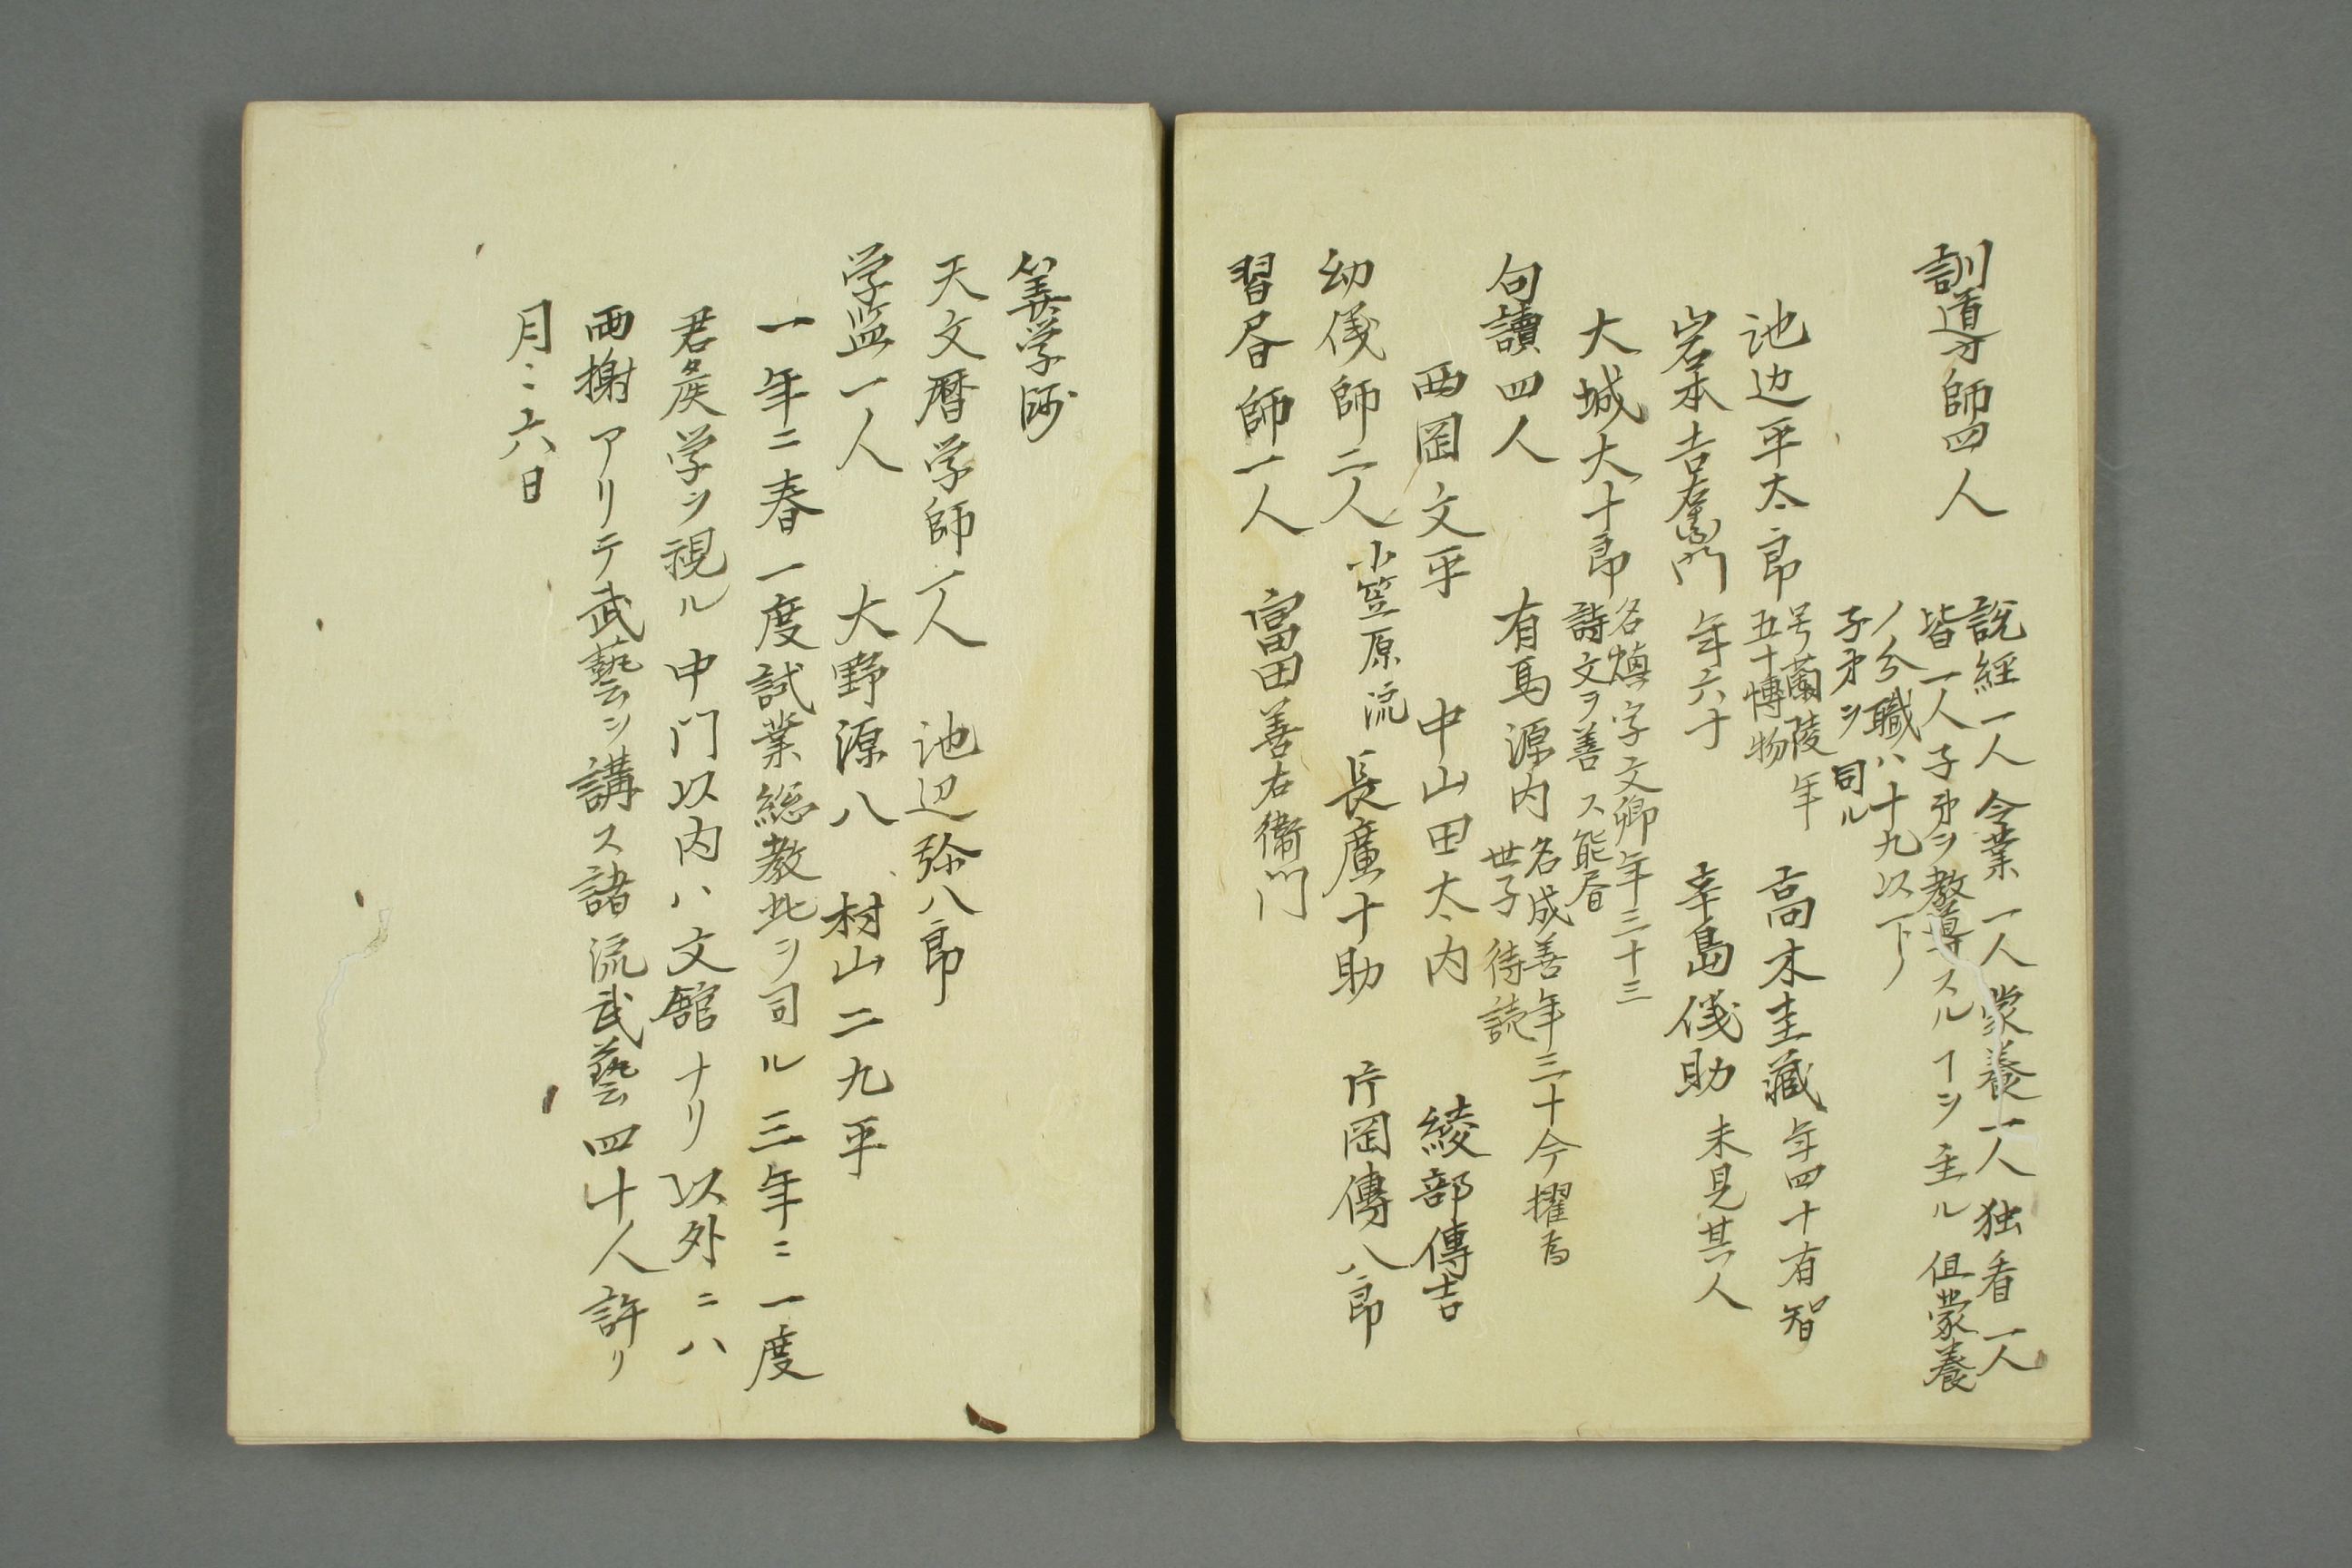 訓導師四人
説経一人今業一人蒙養一人独看一人
皆一人子弟ヲ教導スルヿヲ主ル但蒙養
ノ分職ハ十九以下ノ
子弟ヲ司ル
池辺平太郎
号蘭陵年
五十博物
高木圭蔵
年四十有智
岩本吉右衛門
年六十
辛島儀助
未見其人
大城大十郎
名煥字文卿年三十三
詩文ヲ善ス能書
句讀四人
有馬源内
名成善年三十今擢為
世子待読
西岡文平
中山田太内
綾部傳吉
幼儀師二人
小笠原流
長廣十助
片岡傳八郎
習書師一人
富田善右衛門
筭学師
天文暦学師一人
池辺弥八郎
学監一人
大野源八
村山二九平
一年ニ春一度試業総教此ヲ司ル三年ニ一度
君矦学ヲ視ル中門以内ハ文舘ナリ以外ニハ
両榭アリテ武藝ヲ講ス諸流武藝四十人許リ
月ニ六日